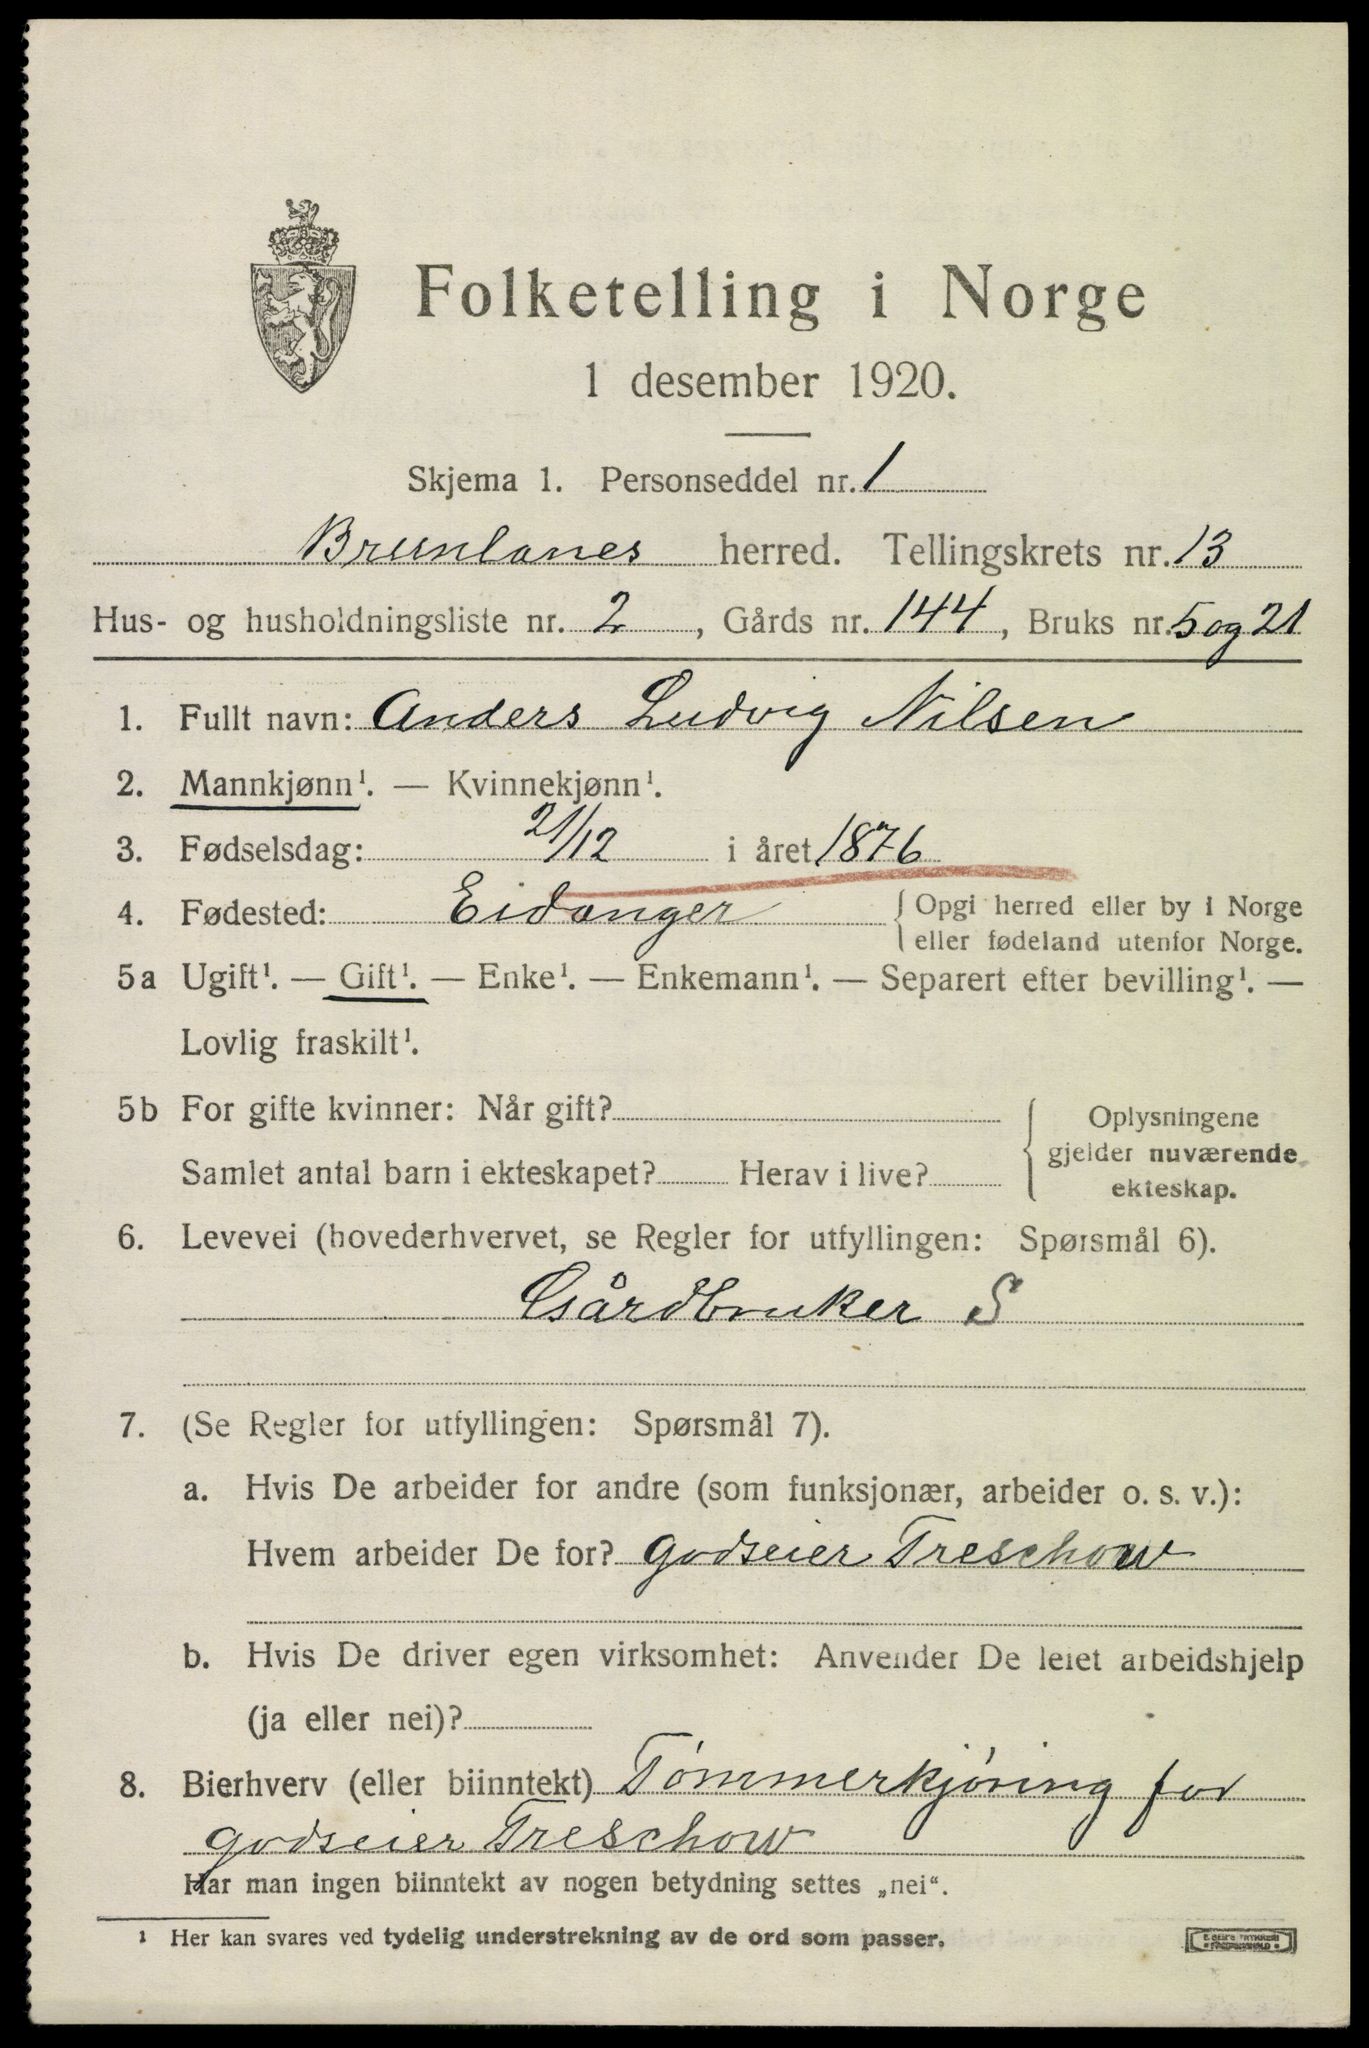 Folketelling i Norge
1 desember 1920.
Skjema 1. Personseddel nr. 1
Brunlanes herred. Tellingskrets nr. 13
Hus- og husholdningsliste nr. 2, Gårds nr. 144, Bruks nr. 5 og 21
1. Fullt navn: Anders Ludvig Nilsen
2. Mannkjønn¹. — Kvinnekjønn¹.
3. Fødselsdag: 21/12 i året 1876
4. Fødested: Eidanger { Opgi herred eller by i Norge
eller fødeland utenfor Norge.
5a Ugift¹. — Gift¹. — Enke¹. — Enkemann¹. — Separert efter bevilling¹. —
Lovlig fraskilt¹.
5b For gifte kvinner: Når gift?
Samlet antal barn i ekteskapet? Herav i live?
Oplysningene
gjelder nuværende
ekteskap.
6. Levevei (hovederhvervet, se Regler for utfyllingen: Spørsmål 6).
Gårdbruker S
7. (Se Regler for utfyllingen: Spørsmål 7).
a. Hvis De arbeider for andre (som funksjonær, arbeider o. s. v.):
Hvem arbeider De for? godseier Treschow
b. Hvis De driver egen virksomhet: Anvender De leiet arbeidshjelp
(ja eller nei)?
8. Bierhverv (eller biinntekt) Tømmerkjøring for
godseier Treschow
Har man ingen biinntekt av nogen betydning settes „nei“.
¹ Her kan svares ved tydelig understrekning av de ord som passer.